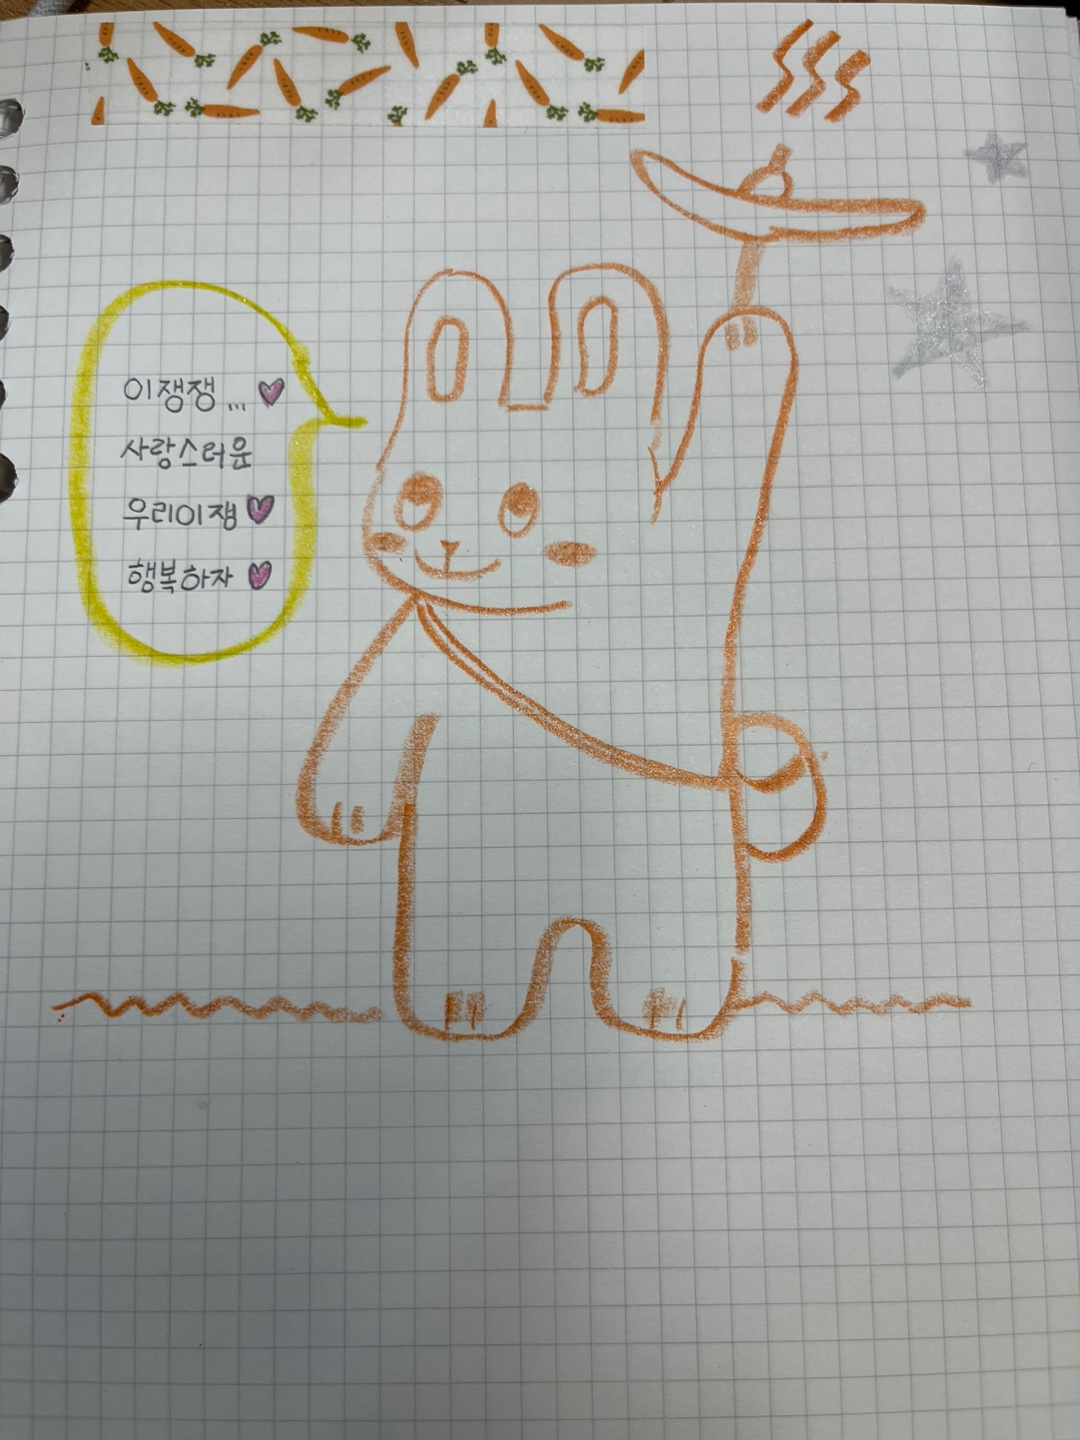 이쟁쟁... ♥
사랑스러운
우리이쟁♥
행복하자 ♥